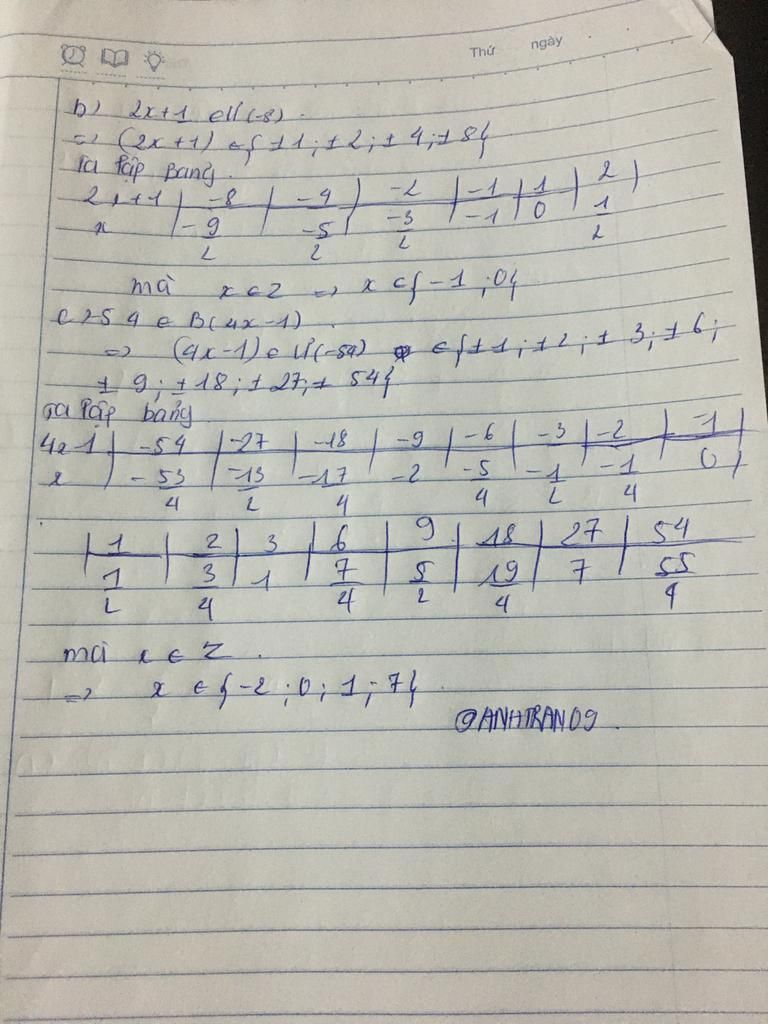 Thứ ngày
b) 2x+1 ∈ Ư(-8).
=> (2x+1) ∈ { ±1; ±2; ±4; ±8 {
Ta lập bảng.
2x+1 | -8 | -4 | -2 | -1 | 1 | 2 |
x | -9/2 | -5/2 | -3/2 | -1 | 0 | 1/2
mà x ∈ Z => x ∈ { -1; 0 {
c) 54 ∈ B(4x-1).
=> (4x-1) ∈ Ư(-54) ∈ { ±1; ±2; ±3; ±6;
±9; ±18; ±27; ±54 {
Ta lập bảng
4x-1 | -54 | -27 | -18 | -9 | -6 | -3 | -2 | -1 |
x | -53/4 | -13/2 | -17/4 | -2 | -5/4 | -1/2 | -1/4 | 0 |
| 1 | 2 | 3 | 6 | 9 | 18 | 27 | 54
| 1/2 | 3/4 | 1 | 7/4 | 5/2 | 19/4 | 7 | 55/4
mà x ∈ Z.
=> x ∈ { -2; 0; 1; 7 {
@ANHTRAN09.